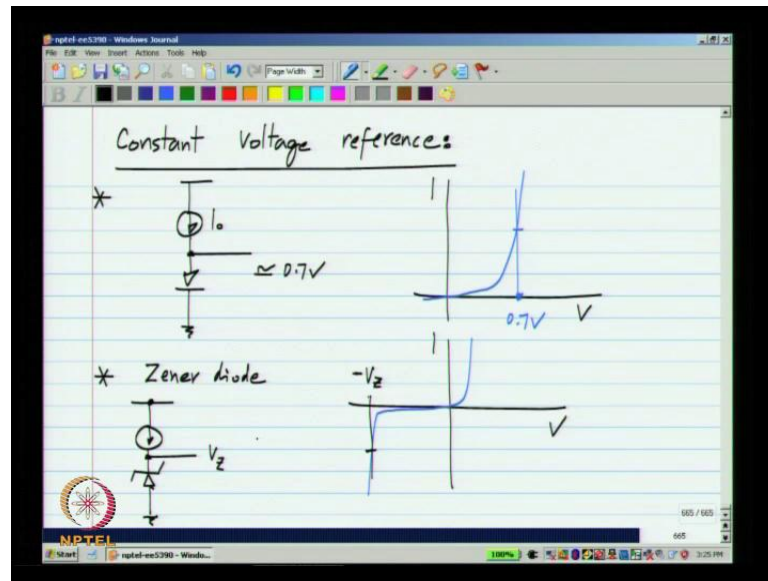 nptel-ee5390 - Windows Journal
File Edit View Insert Actions Tools Help
Page Width
B I
Constant Voltage reference:
*
I₀
≃ 0.7V
I
0.7V
V
* Zener diode
V_Z
I
-V_Z
V
NPTEL
665 / 665
665
Start
nptel-ee5390 - Windo...
100%
3:25 PM